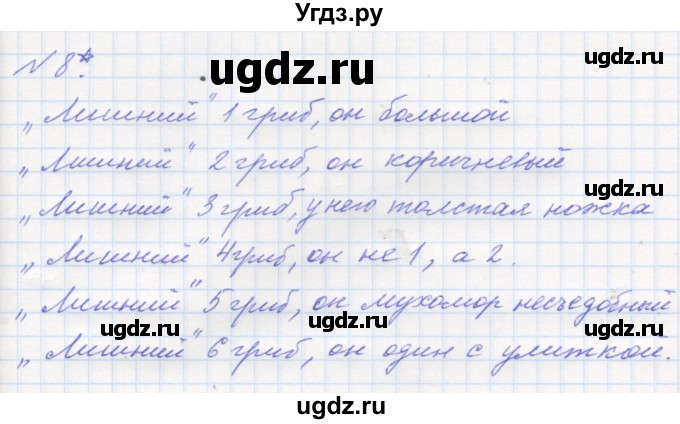 Угдз.ру
ugdz.ru ugdz.ru
N 8*.
„Лишний" 1 гриб, он большой
„Лишний" 2 гриб, он коричневый
ugdz.ru ugdz.ru ugdz.ru
„Лишний" 3 гриб, у него толстая ножка
„Лишний" 4 гриб, он не 1, а 2.
ugdz.ru ugdz.ru
„Лишний" 5 гриб, он мухомор несъедобный
ugdz.ru ugdz.ru ugdz.ru
„Лишний" 6 гриб, он один с улиткой.
ugdz.ru